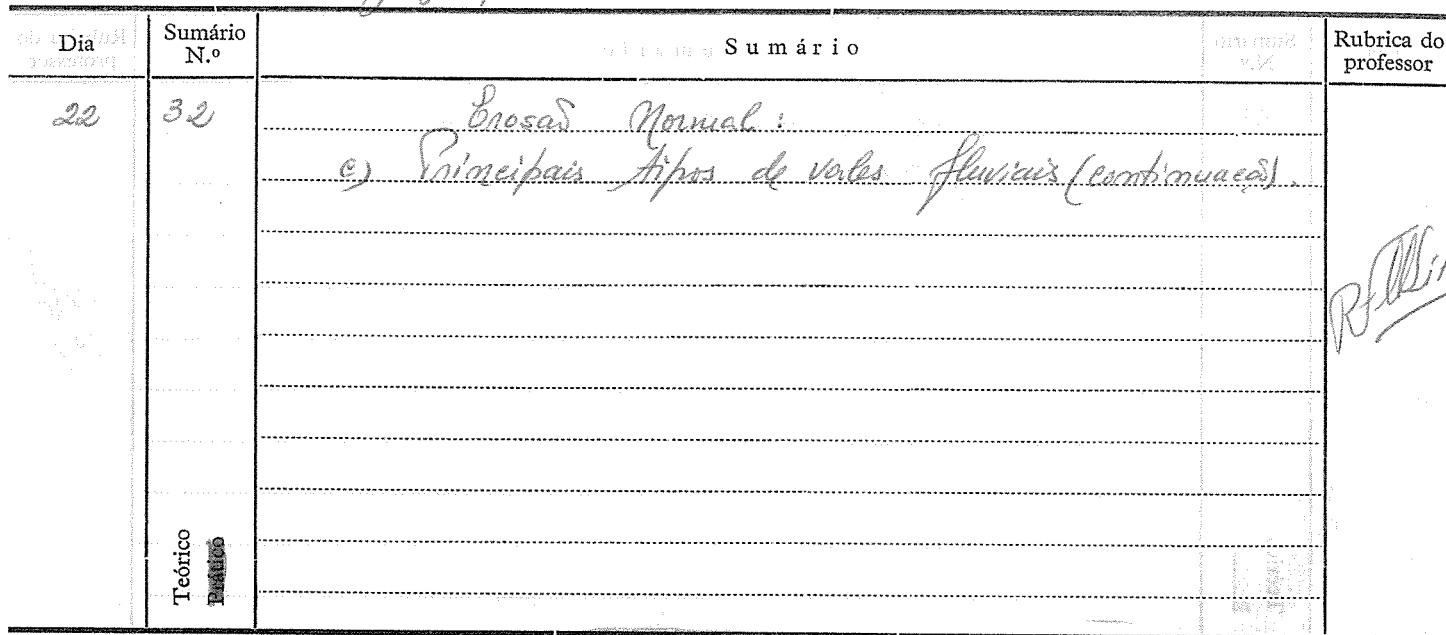 Dia
Sumário N.º
Sumário
Rubrica do professor
22
32
Erosaõ Normal :
c) Principais tipos de vales fluviais (continuacaõ).
Teórico
Prático